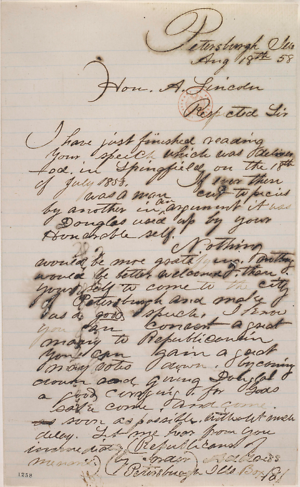 Petersburgh Ills
Aug 18th 58
Hon. A. Lincoln
Respected Sir
I have just finished reading
your speech which was deliver
ed in Springfield on the 18th
of July 1858. If ever there
was a man cut to pieces
by another in an argument it was
Douglas used up by your
Honorable self.
Nothing
would be more
would be better welcomed than
your self to come to the city
of Petersburgh and make
us a good speech. I know
you can convert a great
many to Republicanism
you can gain a great
many votes down by coming
down and giving Douglas
a good for Gods
sake come and
as soon as possible without much
delay. Let me hear from you
immediately
Republicans of
Petersburgh Ills Box
1258